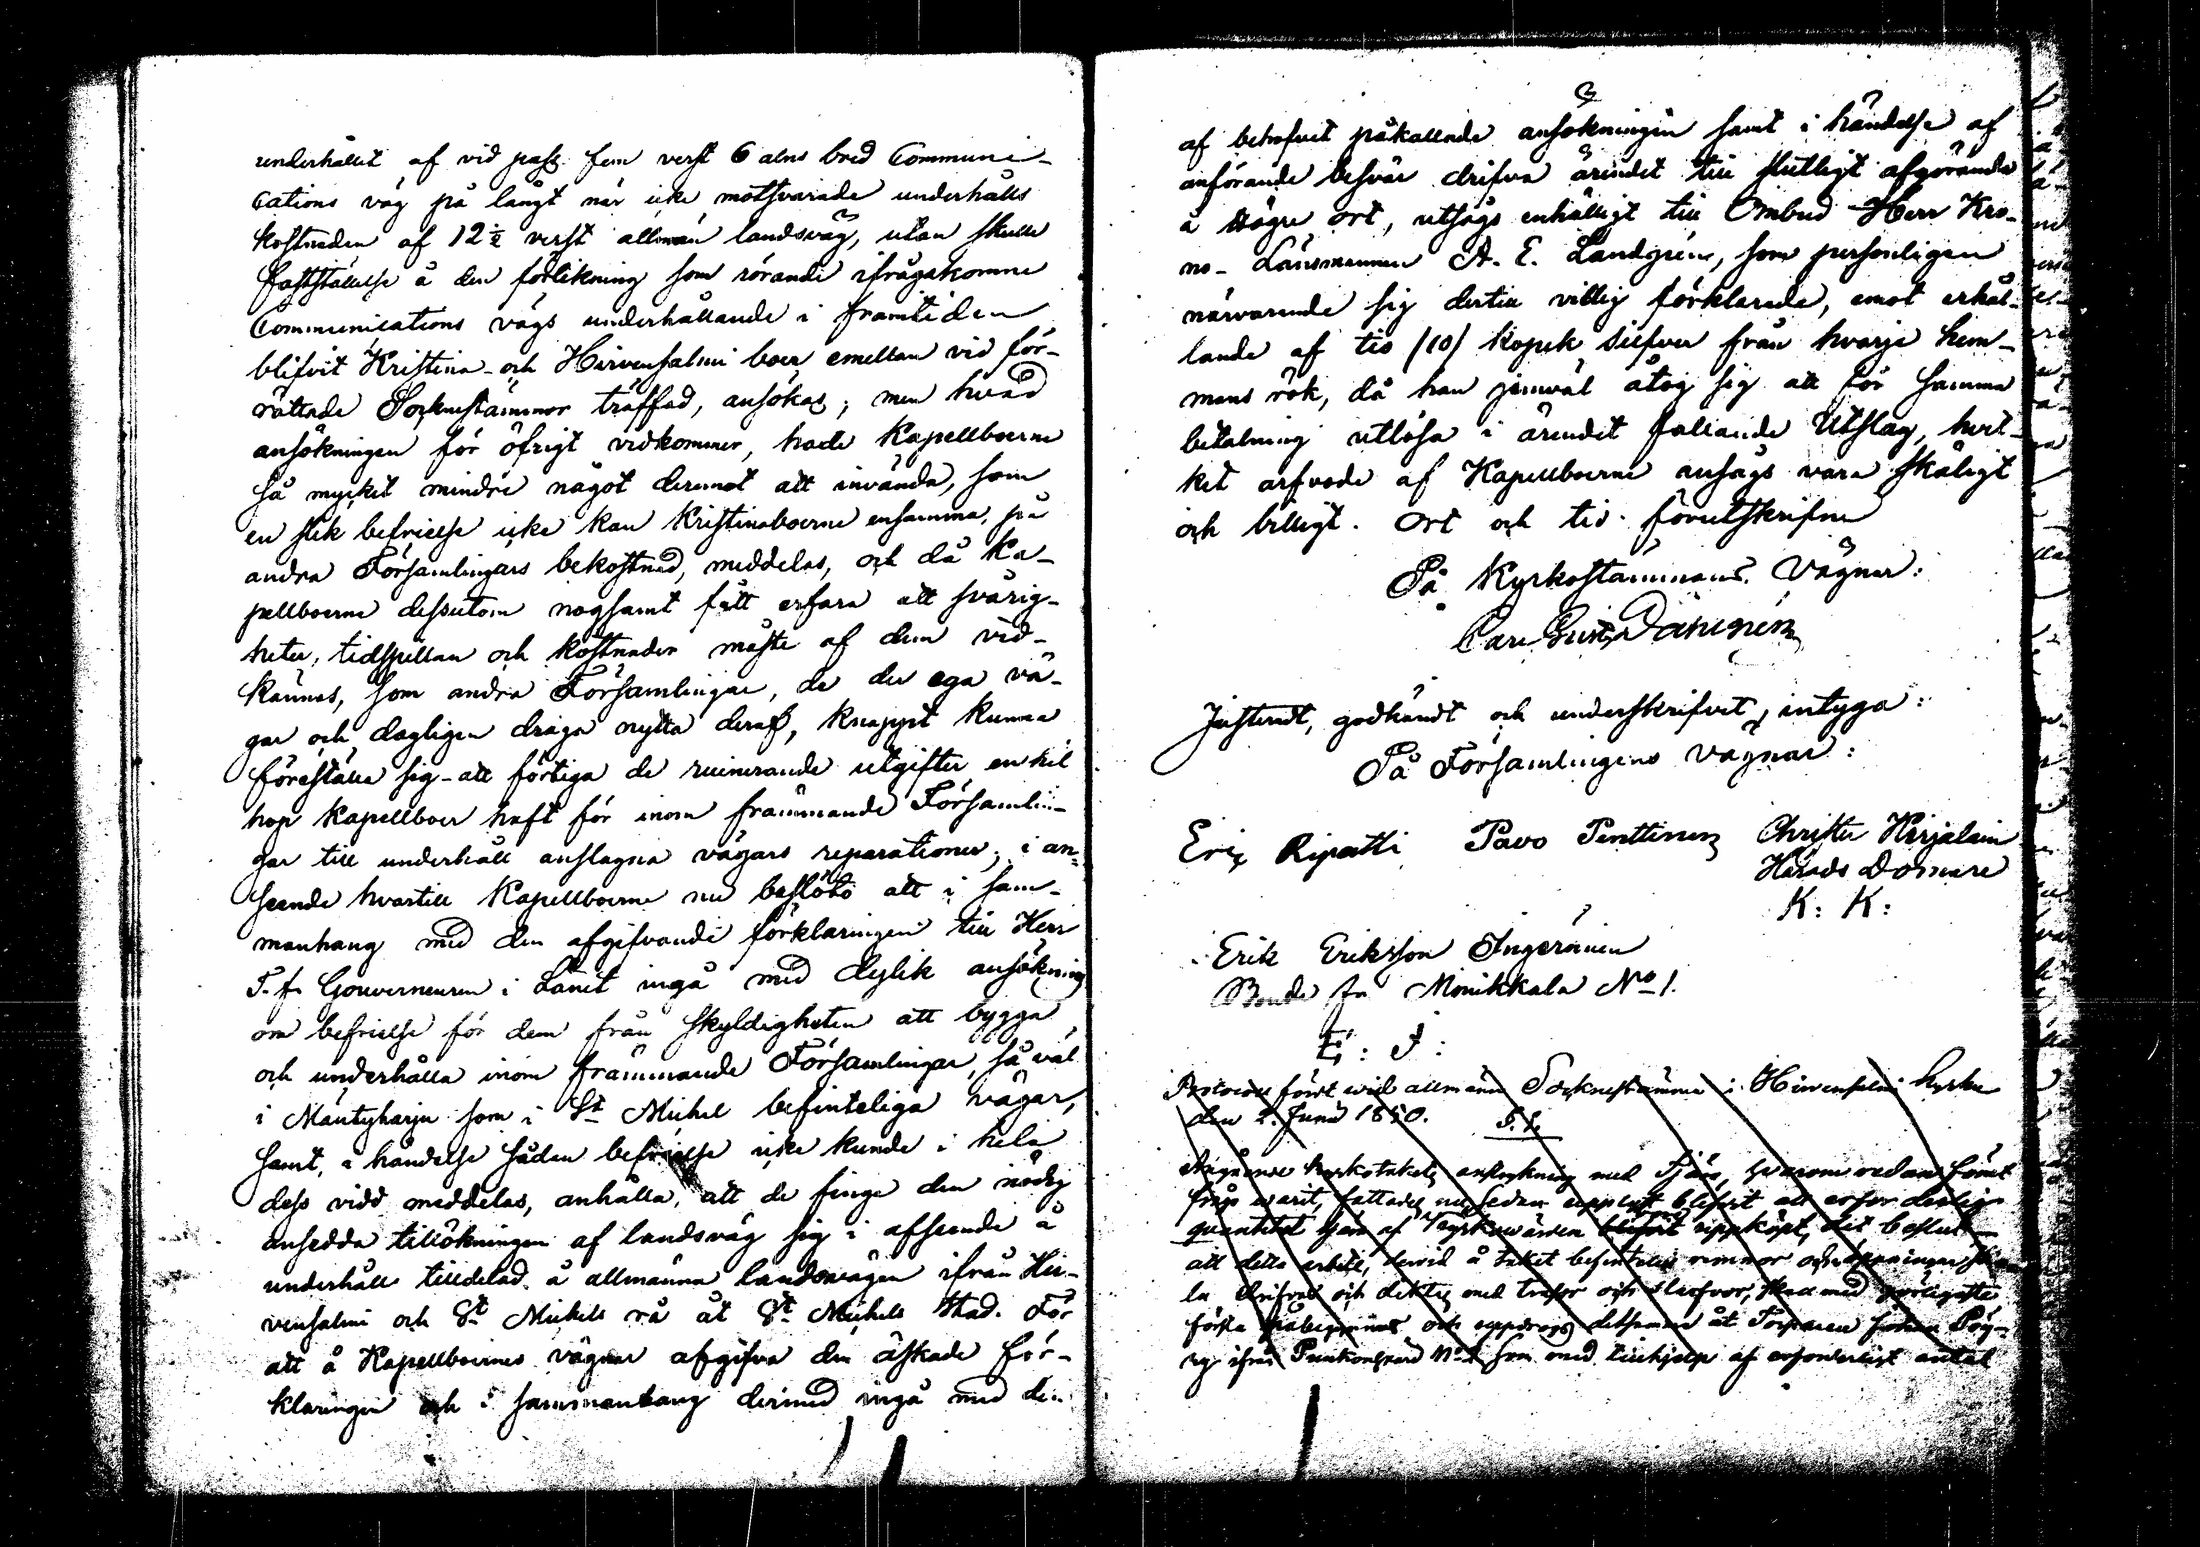 underhållet af vid pass fem verst 6 alns bred Communi-
cations väg på långt när icke motsvarade underhålls
kostnaden af 12 1/2 verst allmän landsväg, utan skulle
fastställelse å den förlikning som rörande ifrågakomne
Communications vägs underhållande i framtiden
blifvit Kristina- och Hirvensalmi boer emellan vid för-
rättade Sockenstämmor träffad, ansökas; men hvad
ansökningen för öfrigt vidkommer, hade Kapellboerne
så mycket mindre något deremot att invända, som
en slik befrielse icke kan Kristinaboerne ensamma, på
andra Församlingars bekostnad, meddelas, och då Ka-
pellboerne dessutom nogsamt fått erfara att svårig-
heter, tidspillan och kostnader måste af dem vid-
kännas, som andra Församlingar, de der ega vä-
gar och dagligen draga nytta deraf, knappt kunna
föreställa sig - att förtiga de ruinerande utgifter en hel
hop Kapellboer haft för inom främmande Församlin-
gar till underhåll anslagna vägars reparationer; i an-
seende hvartill Kapellboerne nu beslöto att i sam-
manhang med den afgifvande förklaringen till Herr
T. f. Gouverneuren i Länet ingå med dylik ansökning
om befrielse för dem från skyldigheten att bygga
och underhålla inom främmande Församlingar, så väl
i Mäntyharju som i St Michel befinteliga vägar,
samt, i händelse sådan befrielse icke kunde i hela
dess vidd meddelas, anhålla, att de finge den nödig
ansedda tillökningen af landsväg sig i afseende å
underhåll tilldelad å allmänna landsvägen ifrån Hir-
vensalmi och St Michels rå åt St Michels Stad. För
att å Kapellboernes vägnar afgifva den äskade för-
klaringen och i sammanhang dermed ingå med den
af behofvet påkallade ansökningen samt i händelse af
anförande besvär drifva ärendet till slutligt afgörande
å Högre ort, utsågs enhälligt till Ombud Herr Kro-
no-Länsmannen A. E. Landgrén, som personligen
närvarande sig dertill villig förklarade, emot erhål-
lande af tio /10/ kopek silfver från hvarje hem-
mans rök, då han jemväl åtog sig att för samma
betalning utlösa i ärendet fallande Utslag, hvil-
ket arfvode af Kapellboerne ansågs vara skäligt
och billigt. Ort och tid förutskrifne
På Kyrkostämmans Vägnar:
Carl Gust
Justeradt, godkändt och underskrifvet, intyga:
På Församlingens vägnar:
Eric Ripatti Pavo Penttinen Christer Hirjalain
Härads Domare
K: K:
Erik Eriksson Ingeroinen
Bonde fr Monikkala No 1.
E: I:
Protocoll fördt wid allmänn Sockenstämma i Hirvensalmi kyrka
den 2. Junii 1850.
§. 1.
Angående kyrkotakets anstrykning med Tjära, hvarom redan förut
fråga warit, fattades nu, sedan upplyst blifvit att erforderlig
quantitet tjära af Kyrkowärden blifvit uppköpt, det beslut
att detta arbete, derwid å taket befintelige remnor och öppningar
och tättas med trasor och
första påbegynnas och uppdrogs detsamma åt Torparen Johan Pöy-
ry ifrån No 1 som med tillhjelp af erforderligt antal